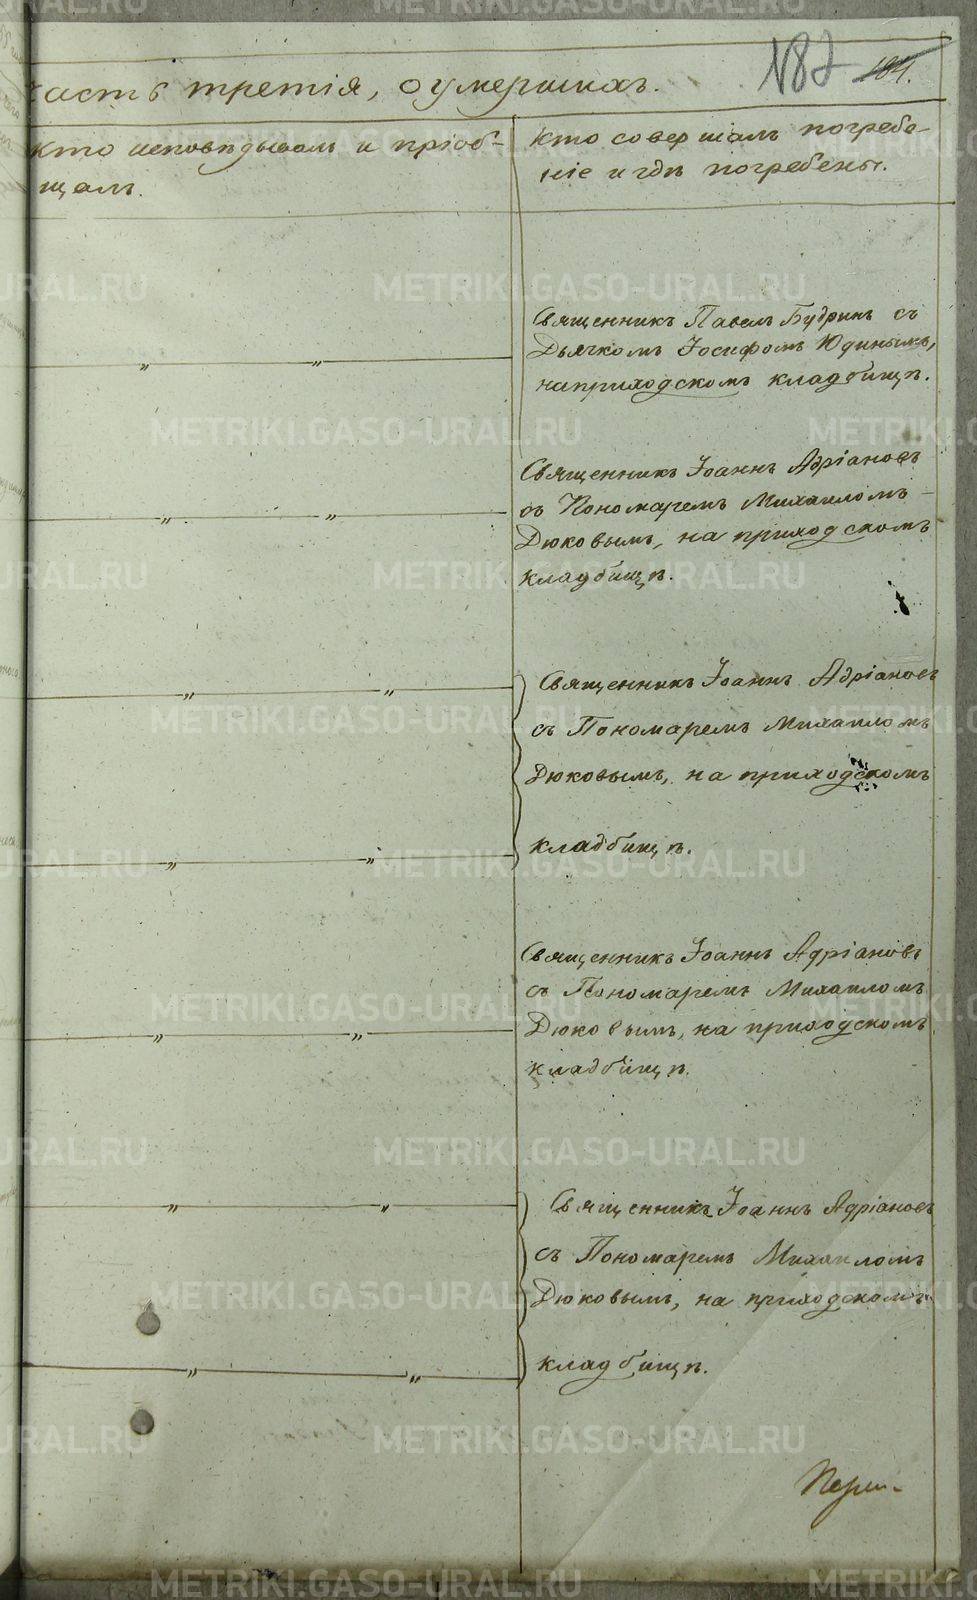 часть третія, о умершихъ.
187 184.
Кто исповѣдывалъ и пріоб-
щалъ.
Кто совершалъ погребе-
ніе и гдѣ погребены.
Священникъ Павелъ Будринъ съ
Дьячкомъ Іосифомъ Юдинымъ,
на приходскомъ кладбищѣ.
" "
Священникъ Іоаннъ Адріановъ
съ Пономаремъ Михаиломъ
Дюковымъ, на приходскомъ
кладбищѣ.
" "
Священникъ Іоаннъ Адріановъ
съ Пономаремъ Михаиломъ
Дюковымъ, на приходскомъ
кладбищѣ.
" "
" "
Священникъ Іоаннъ Адріановъ
съ Пономаремъ Михаиломъ
Дюковымъ, на приходскомъ
кладбищѣ.
" "
Священникъ Іоаннъ Адріановъ
съ Пономаремъ Михаиломъ
Дюковымъ, на приходскомъ
кладбищѣ.
" "
" "
METRIKI.GASO-URAL.RU